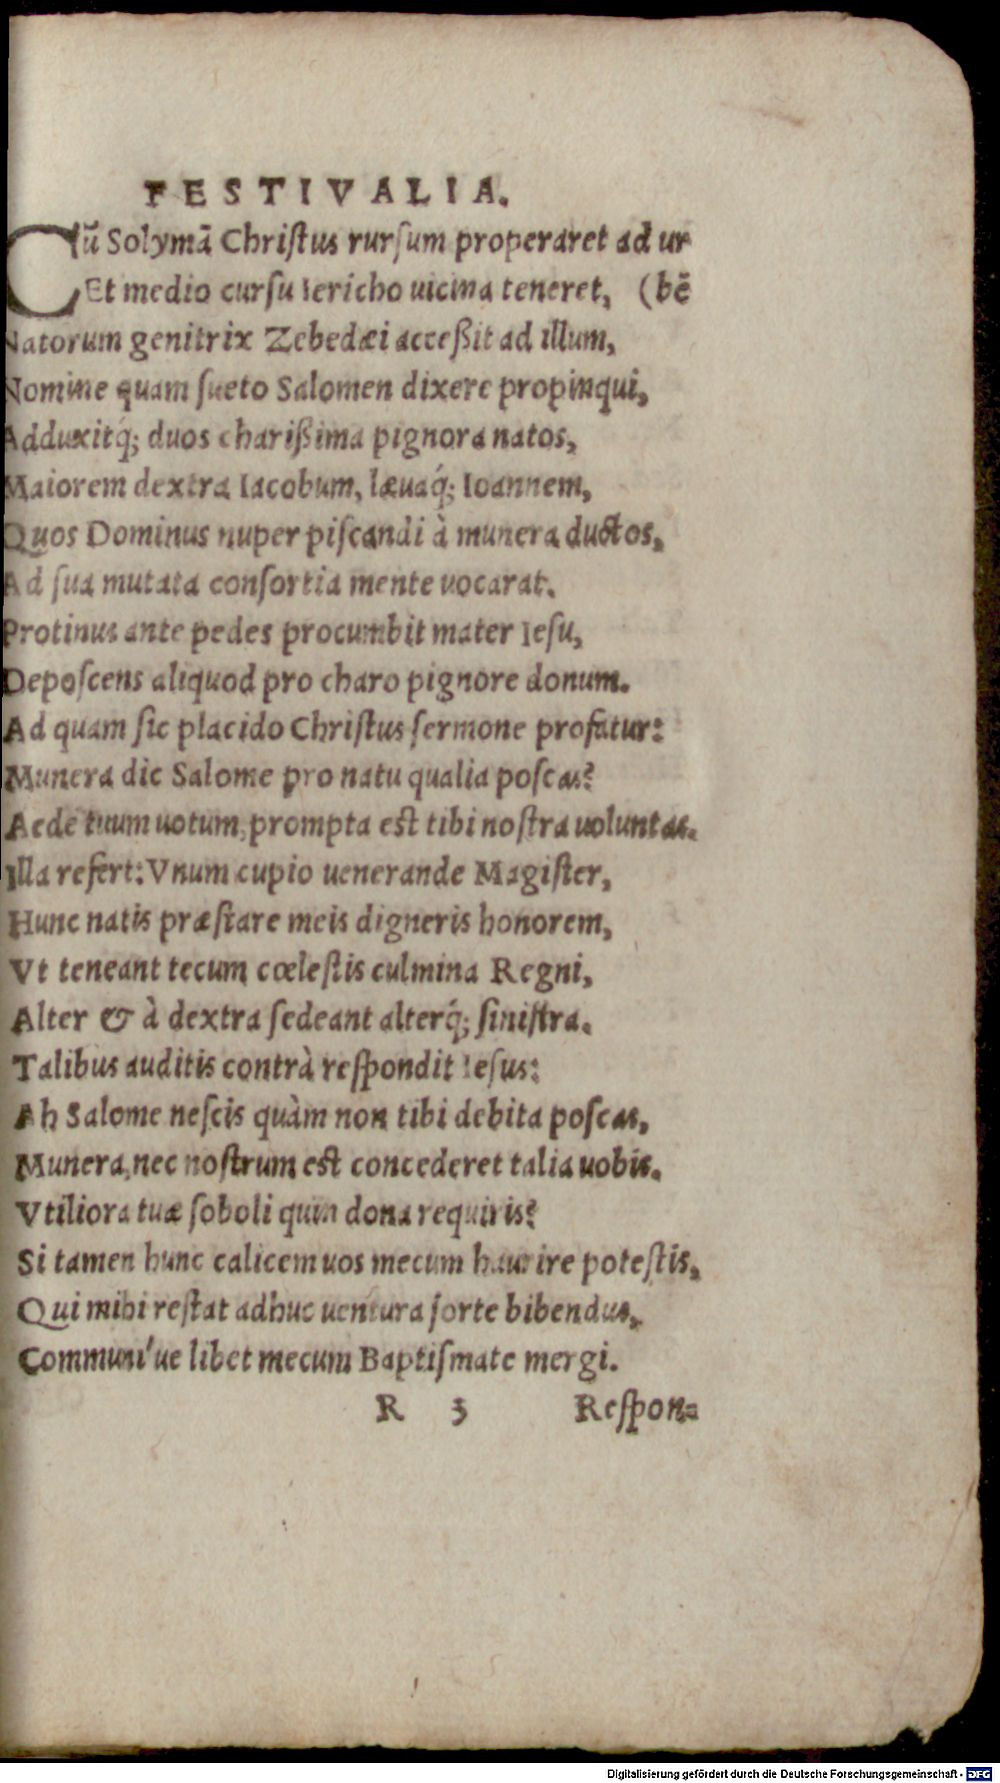 FESTIVALIA.
Cũ Solymã Chriſtus rurſum properaret ad ur
Et medio curſu Iericho uicina teneret, (bẽ
Natorum genitrix Zebedæi acceßit ad illum,
Nomine quam ſueto Salomen dixere propinqui,
Adduxitq́; duos charißima pignora natos,
Maiorem dextra Iacobum, læuaq́; Ioannem,
Quos Dominus nuper piſcandi à munera ductos,
Ad ſua mutata conſortia mente vocarat.
Protinus ante pedes procumbit mater Ieſu,
Depoſcens aliquod pro charo pignore donum.
Ad quam ſic placido Chriſtus ſermone profatur:
Munera dic Salome pro natu qualia poſcas?
Aede tuum uotum, prompta est tibi noſtra uoluntas.
Illa refert: Vnum cupio uenerande Magiſter,
Hunc natis præſtare meis digneris honorem,
Vt teneant tecum cœleſtis culmina Regni,
Alter & à dextra ſedeant alterq́; ſiniſtra.
Talibus auditis contrà reſpondit Ieſus:
Ah Salome neſcis quàm non tibi debita poſcas,
Munera, nec noſtrum est concederet talia uobis.
Vtiliora tuæ ſoboli quin dona requiris?
Si tamen hunc calicem uos mecum haurire poteſtis,
Qui mihi reſtat adhuc uentura ſorte bibendus,
Communi've libet mecum Baptiſmate mergi.
R 3 Reſpon-
Digitalisierung gefördert durch die Deutsche Forschungsgemeinschaft - DFG